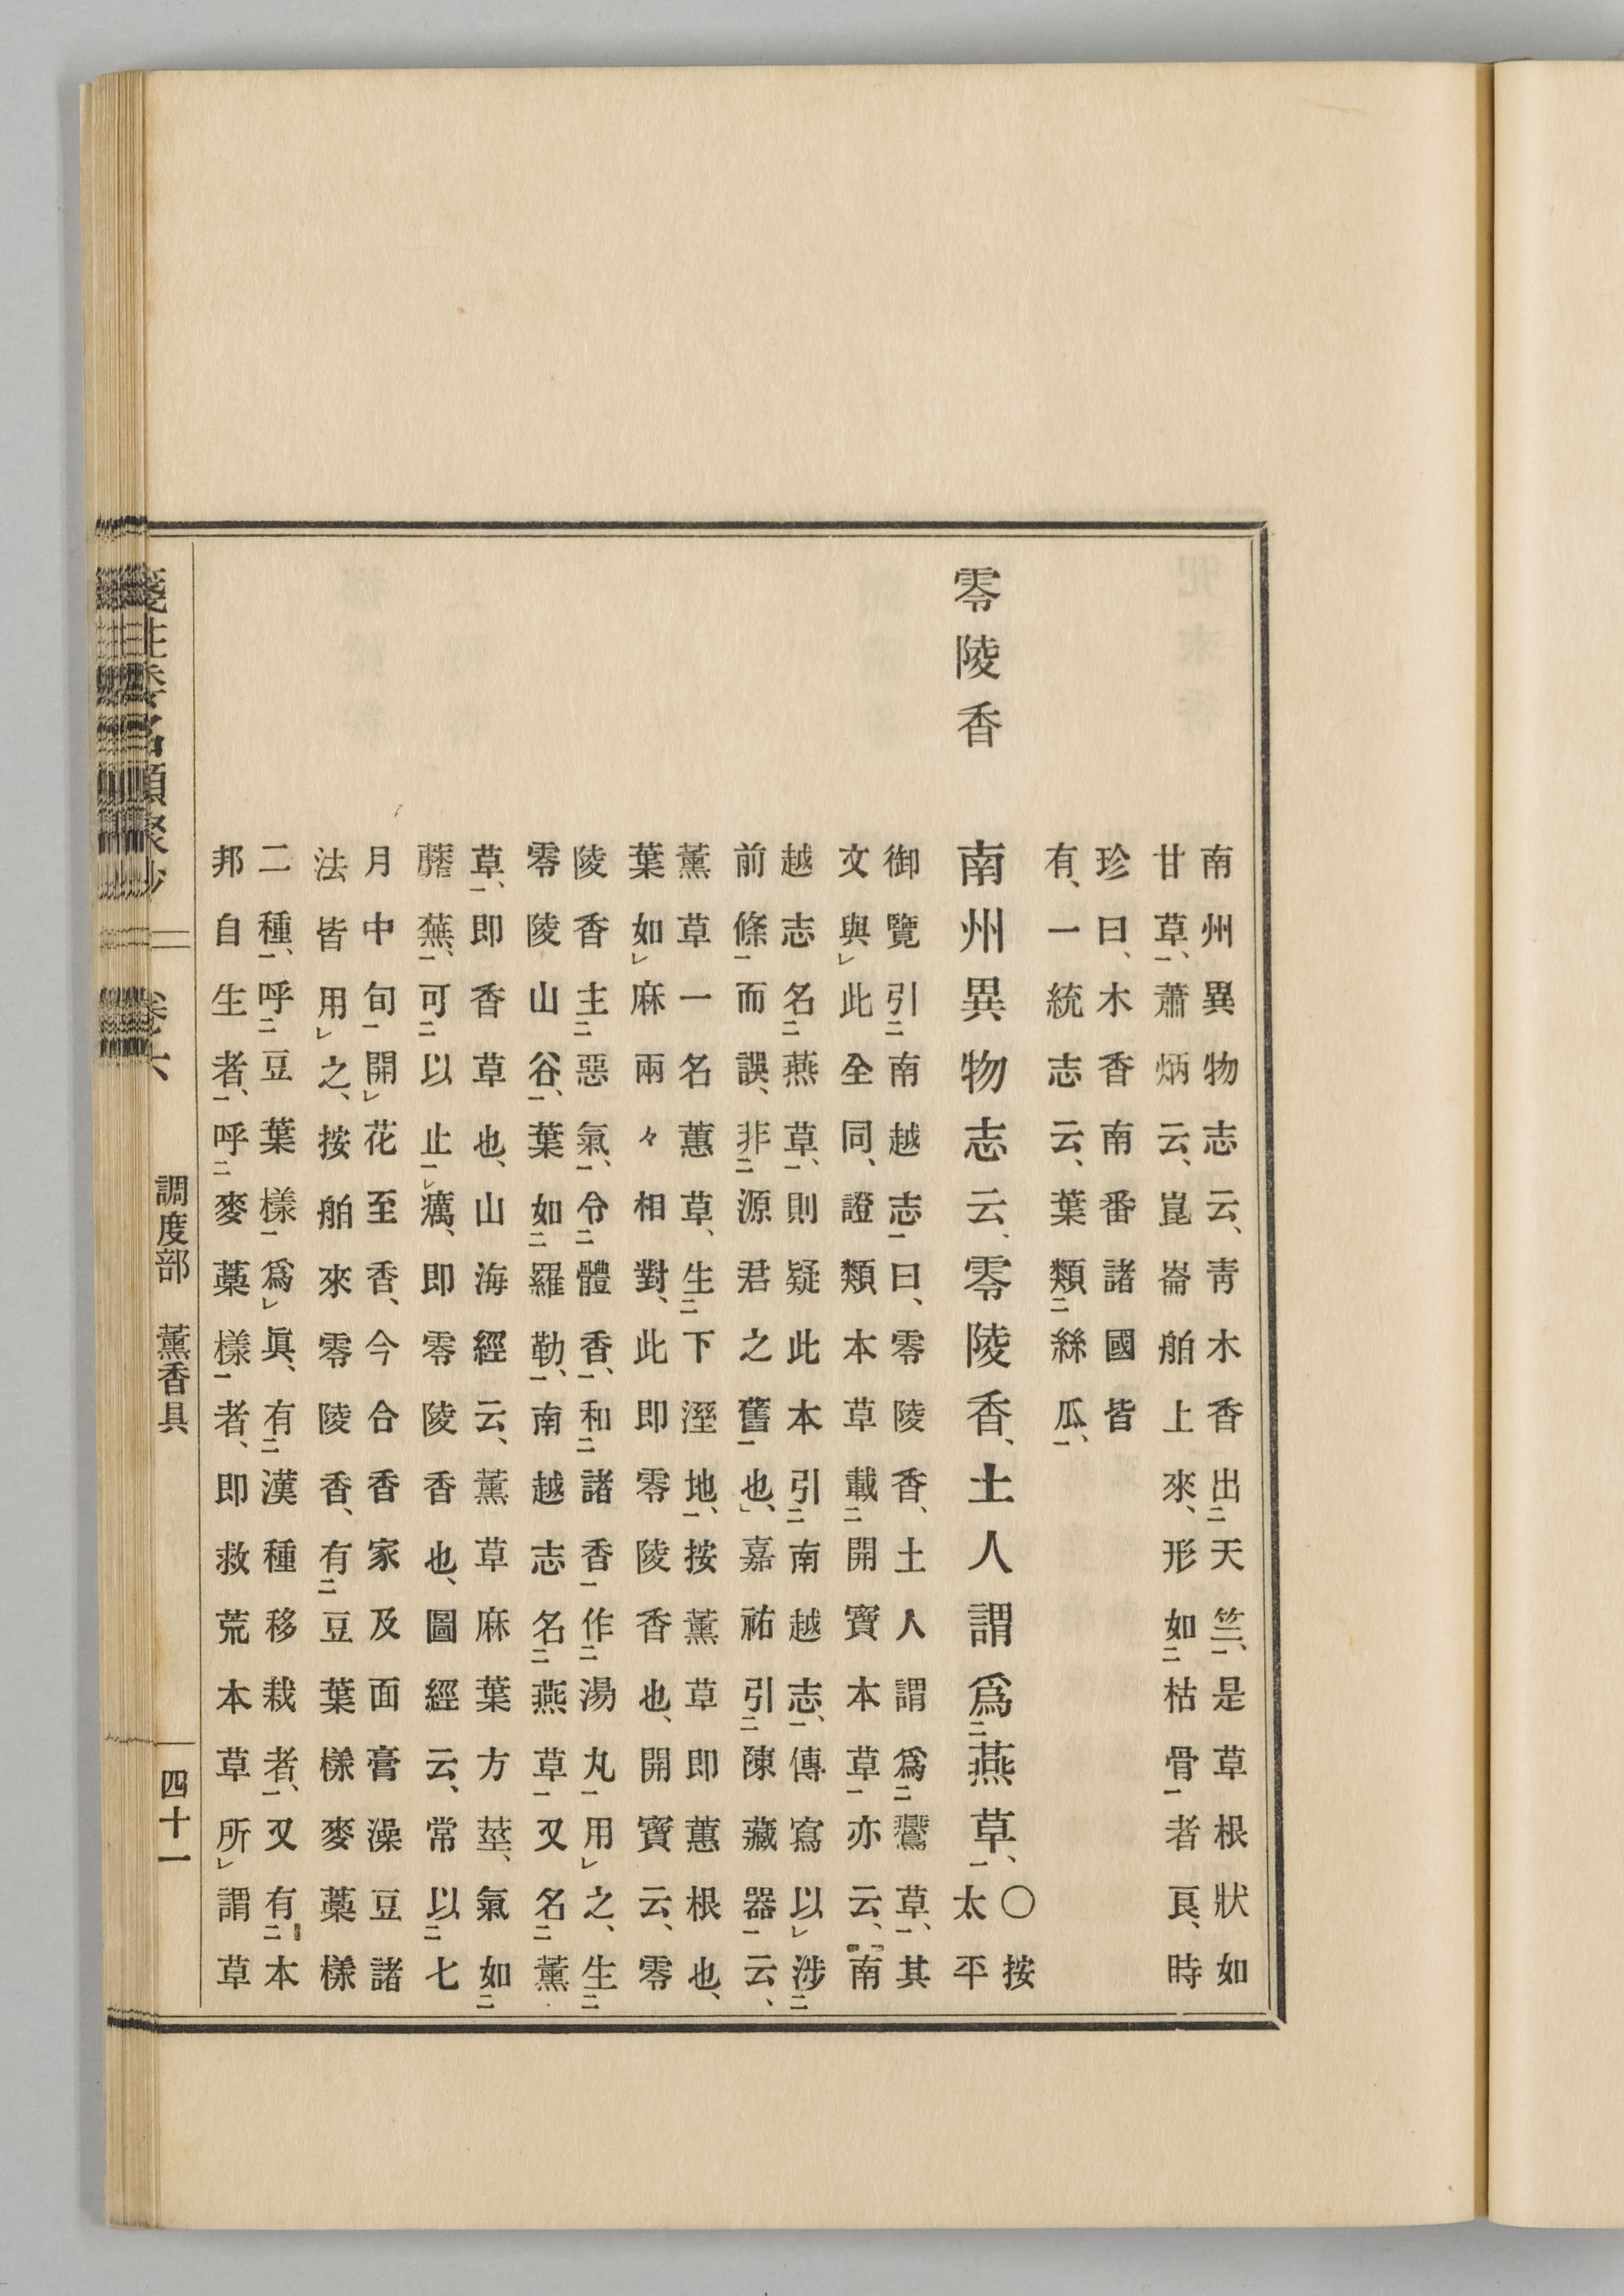 南州異物志云、青木香出二天竺一、是草根狀如
甘草一、蕭炳云、崑崙舶上來、形如二枯骨一者良、時
珍曰、木香南番諸國皆
有、一統志云、葉類二絲瓜一、
零陵香　南州異物志云、零陵香、土人謂爲二燕草一、〇按
太平
御覽引二南越志一曰、零陵香、土人謂爲二鷰草一、其
文與レ此全同、證類本草載二開寶本草一亦云、南
越志名二燕草一、則疑此本引二南越志一、傳寫以レ涉二
前條一而誤、非二源君之舊一也、嘉祐引二陳藏器一云、
薰草一名蕙草、生二下溼地一、按薰草即蕙根也、
葉如レ麻兩々相對、此即零陵香也、開寶云、零
陵香主二惡氣一、令二體香一、和二諸香一作二湯丸一用レ之、生二
零陵山谷一、葉如二羅勒一、南越志名二燕草一又名二薰
草一、即香草也、山海經云、薰草麻葉方莖、氣如二
蘼蕪一、可二以止一レ癘、即零陵香也、圖經云、常以二七
月中旬一開レ花至香、今合香家及面膏澡豆諸
法皆用レ之、按舶來零陵香、有二豆葉樣麥藁樣
二種一、呼二豆葉樣一爲レ眞、有二漢種移栽者一、又有二本
邦自生者一、呼二麥藁樣一者、即救荒本草所レ謂草
調度部　薰香具　四十一